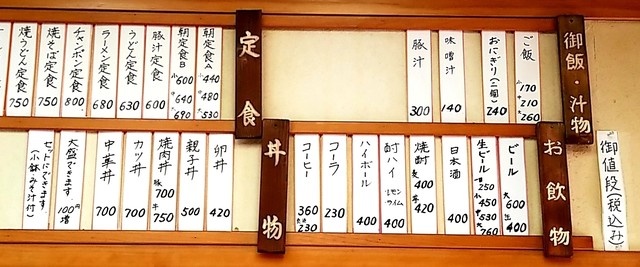 御飯・汁物
ご飯 小170 中210 大260
おにぎり(二個) 240
味噌汁 140
豚汁 300
定食
朝定食A 小440 中480 大530
朝定食B 小600 中640 大690
豚汁定食 600
うどん定食 630
ラーメン定食 680
チャンポン定食 800
焼そば定食 750
焼うどん定食 750
御値段(税込み)
お飲物
ビール 大600 小400
生ビール 小450 中530 大760
日本酒 400
焼酎 麦400 芋420
酎ハイ レモン ライム 400
ハイボール 400
コーラ 230
コーヒー 360
230
丼物
卵丼 420
親子丼 500
焼肉丼 豚700 牛750
カツ丼 700
中華丼 700
大盛できます 100円増
セットにできます
(小鉢みそ汁付)